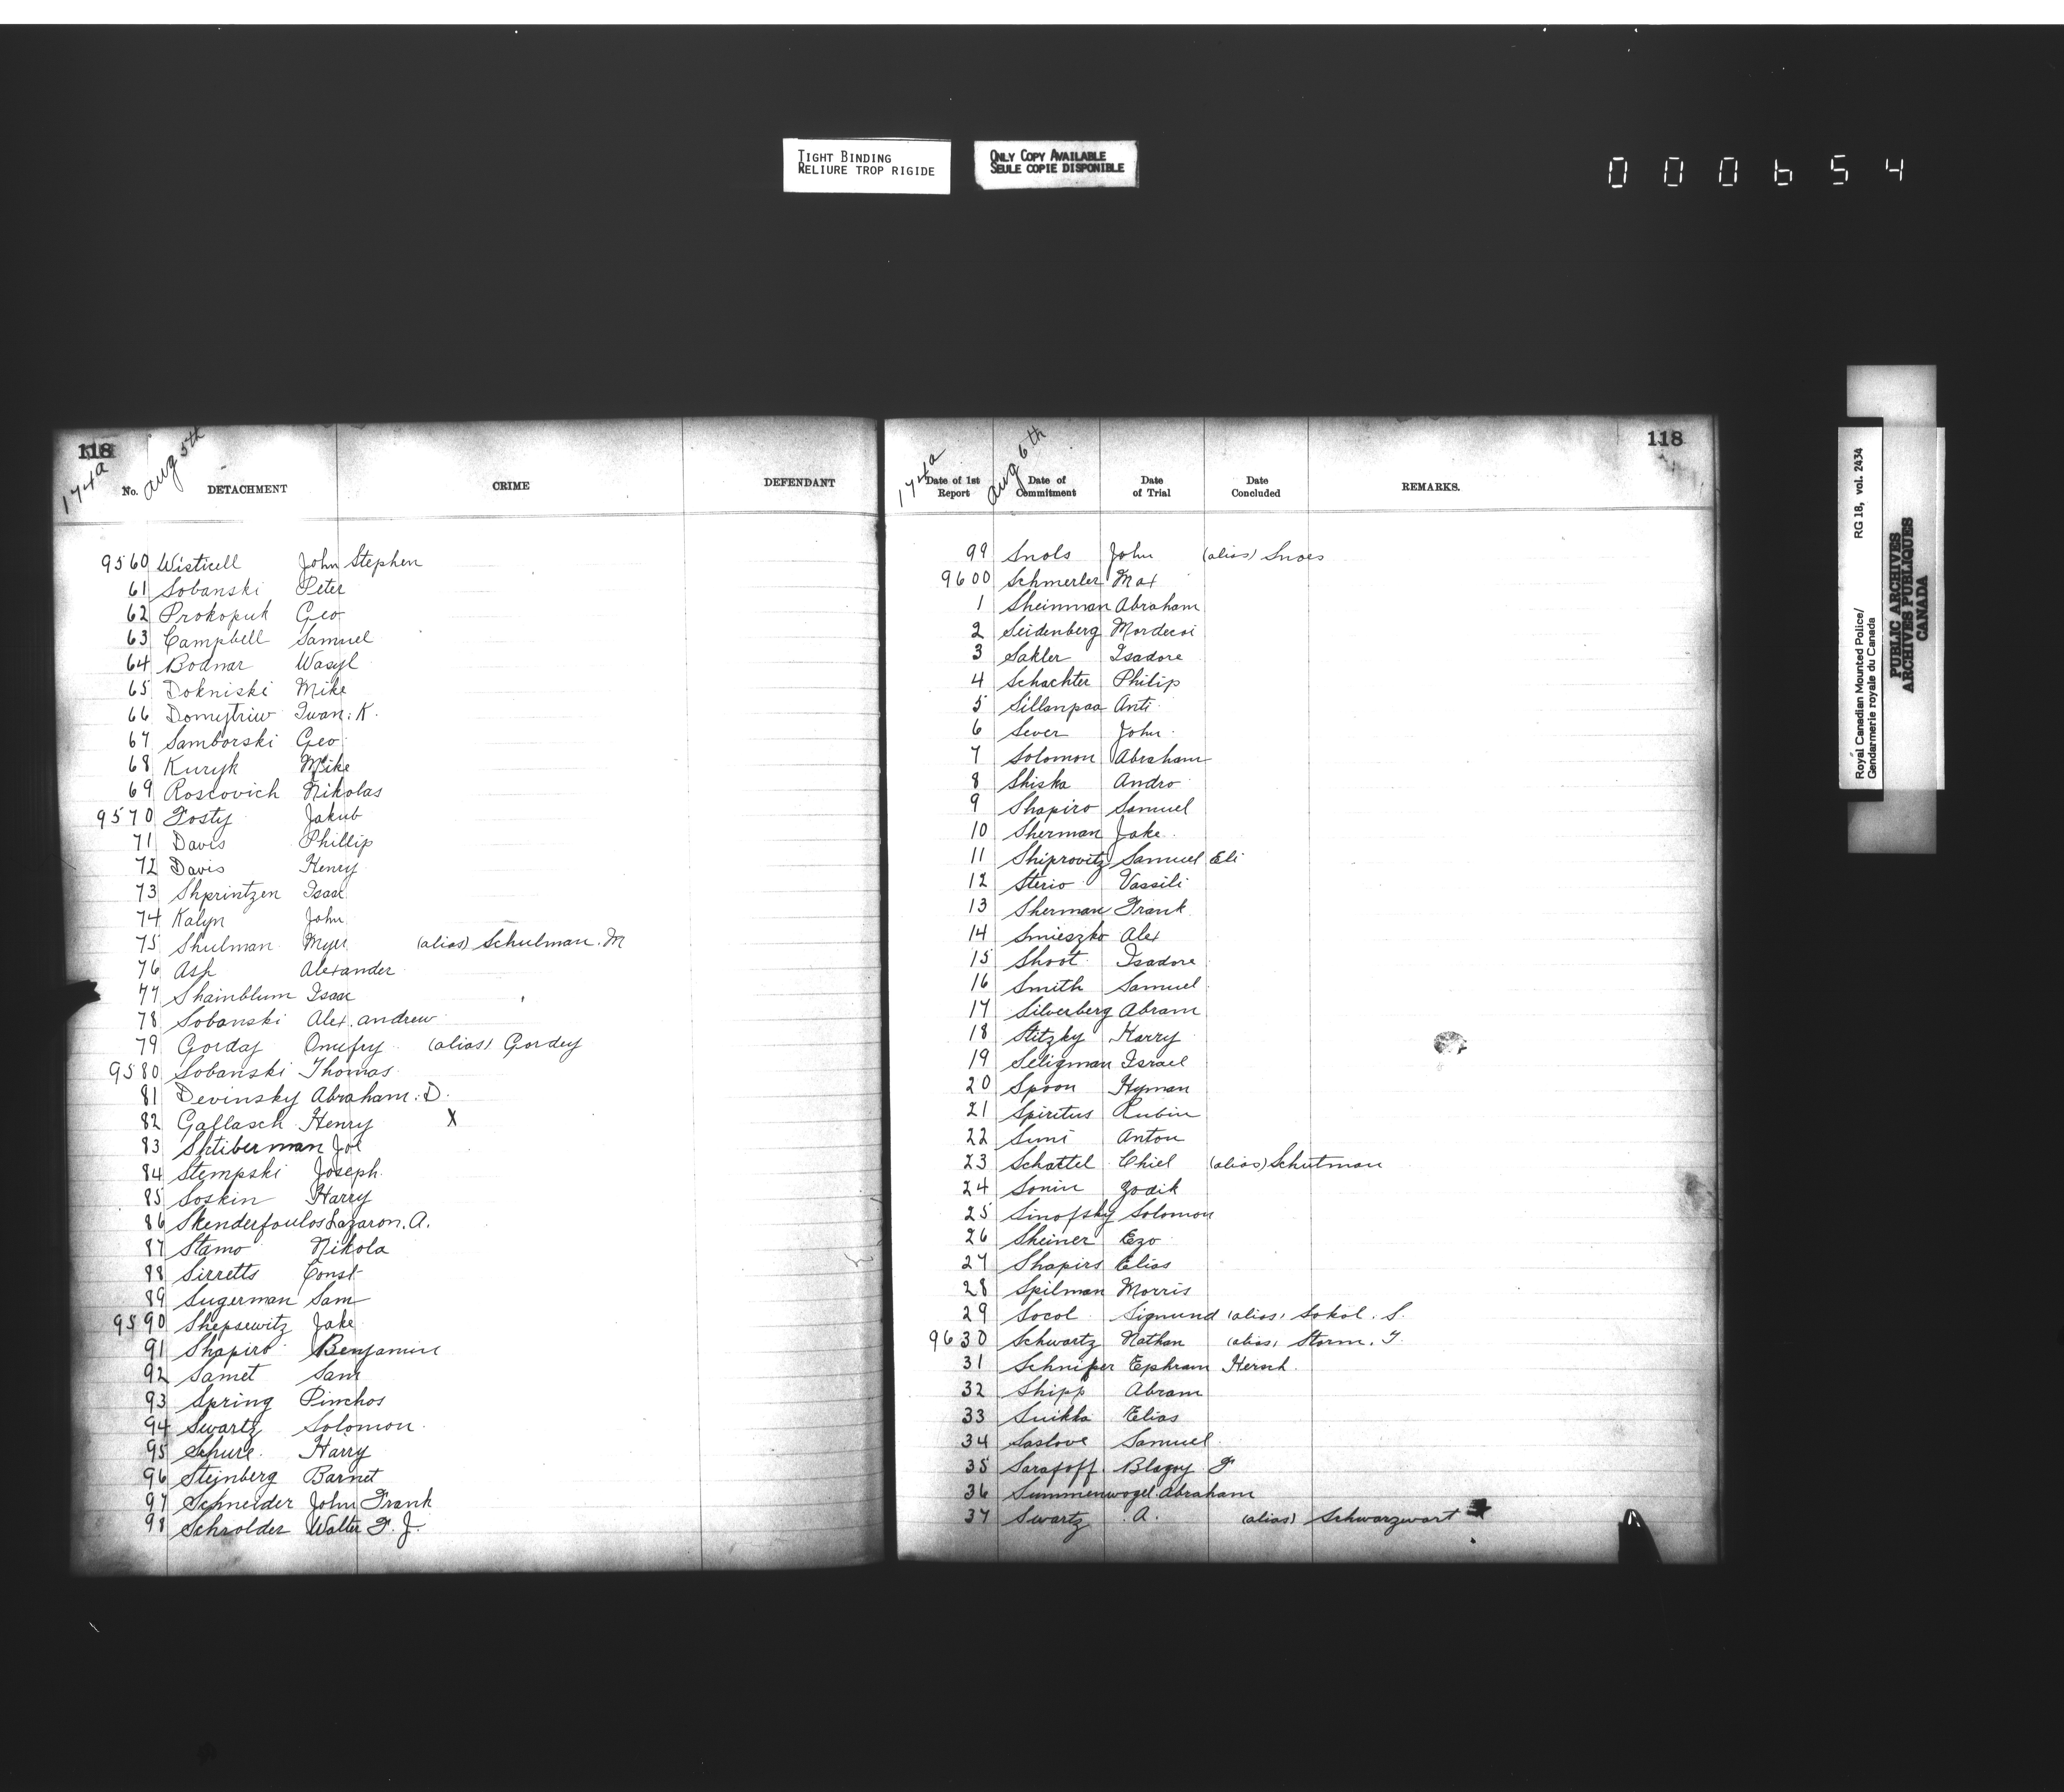 TIGHT BINDING
RELIURE TROP RIGIDE
ONLY COPY AVAILABLE
SEULE COPIE DISPONIBLE
000654
118
174a
Aug 5th
No. DETACHMENT CRIME DEFENDANT
9560 Wisticell John Stephen
61 Sobanski Peter
62 Prokopuk Geo
63 Campbell Samuel
64 Bodnar Wasyl
65 Dokniski Mike
66 Domytriw Iwan. K.
67 Samborski Geo
68 Kuryk Mike
69 Roscovich Nikolas
9570 Fosty Jakub
71 Davis Phillip
72 Davis Henry
73 Shprintzen Isaac
74 Kalyn John
75 Shulman Myer (alias) Schulman. M
76 Ash Alexander
77 Shainblum Isaac
78 Sobanski Alex. Andrew
79 Gorday Onufry (alias) Gordey
9580 Sobanski Thomas
81 Devinsky Abraham. D.
82 Gallasch Henry X
83 Shtiberman Joe
84 Stempski Joseph.
85 Soskin Harry
86 Skenderfoulos Lazaron. A.
87 Stamo Nikola
88 Sirretts Const
89 Sugerman Sam
9590 Shepsewitz Jake
91 Shapiro Benjamin
92 Samet Sam
93 Spring Pinchos
94 Swartz Solomon
95 Schure. Harry
96 Steinberg Barnet
97 Schneider John Frank
98 Schrolder Walter F. J.
118
174a
Aug 6th
Date of 1st Report Date of Commitment Date of Trial Date Concluded REMARKS.
99 Snols John (alias) Snoes
9600 Schmerler Max
1 Sheinman Abraham
2 Seidenberg Mordecai
3 Sakler Isadore
4 Schachter Philip
5 Sillanpaa Anti
6 Sever John
7 Solomon Abraham
8 Shiska Andro
9 Shapiro Samuel
10 Sherman Jake
11 Shiprovitz Samuel Eli
12 Sterio Vassili
13 Sherman Frank
14 Smieszko Alex
15 Shoot Isadore
16 Smith Samuel
17 Silverberg Abram
18 Stitzky Harry
19 Seligman Israel
20 Spoon Hyman
21 Spiritus Rubin
22 Simi Anton
23 Schattel Chiel (alias) Schutman
24 Sonin Zodik
25 Sinofsky Solomon
26 Sheiner Ezo
27 Shapirs Elias
28 Spilman Morris
29 Socol Sigmund (alias) Sokol. S.
9630 Schwartz Nathan (alias) Storm. T.
31 Schnifer Ephram Hersh.
32 Shipp Abram
33 Suikka Elias
34 Saslove Samuel
35 Sarafoff. Blagoy F
36 Summenwogel Abraham
37 Swartz A. (alias) Schwarzwart
Royal Canadian Mounted Police/ RG 18, vol. 2434
Gendarmerie royale du Canada
PUBLIC ARCHIVES
ARCHIVES PUBLIQUES
CANADA